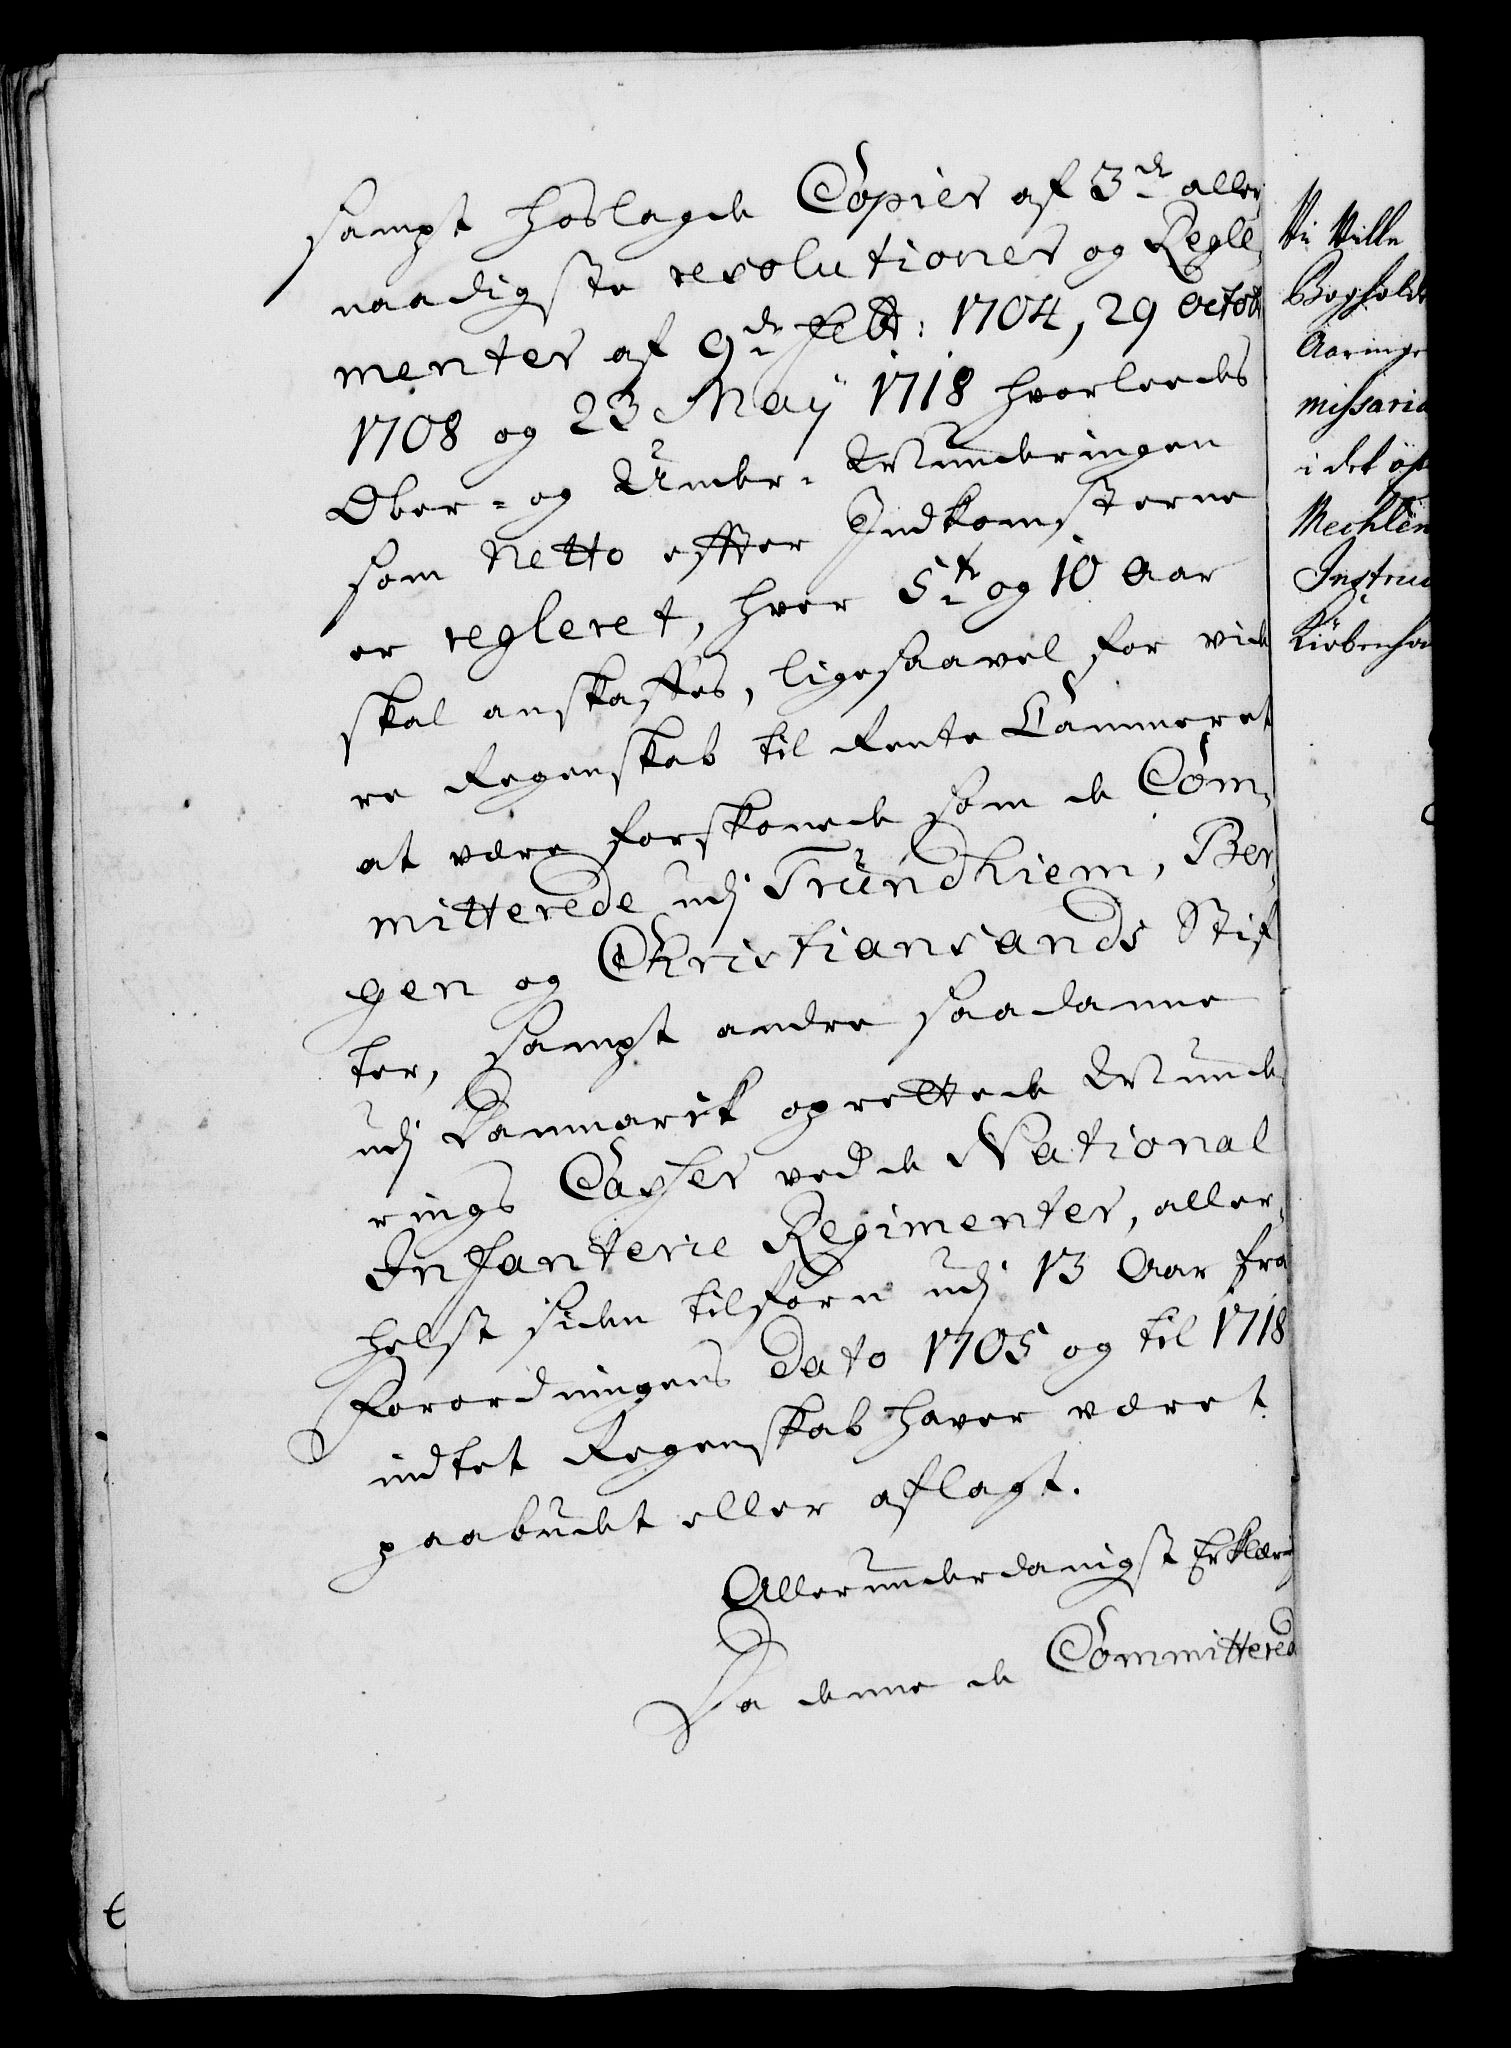 sampt hoslagde Copier af 3de aller
naadigste resolutioner og Regle,
menter af 9de Febr: 1704, 29 Octob
1708 og 23 Maÿ 1718 hvorleedes
Ober- og Under- Munderingen
som netto effter Indkomsterne
er regleret, hver 5te og 10 Aar
skal anskaffes, ligesaavel for vide
re Regenskab til Rente Cammeret
at være forskonede som de Com,
mitterede udj Trundhiem, Ber,
gen og Christiansands Stif
ter, sampt andre saadanne
udj Danmark oprettede Munde,
rings Casser ved de National
Infanterie Regimenter, aller,
helst siden tilforn udj 13 Aar fra
Forordningens Dato 1705 og til 1718
indtet Regenskab haver været
paabudet eller aflagt.
Allerunderdanigst Erklæring
Da denne de Committered
Vi Ville
Bogholde
Aaringe
missaria
i det
Mechlen
Instruc
Kiöbenha